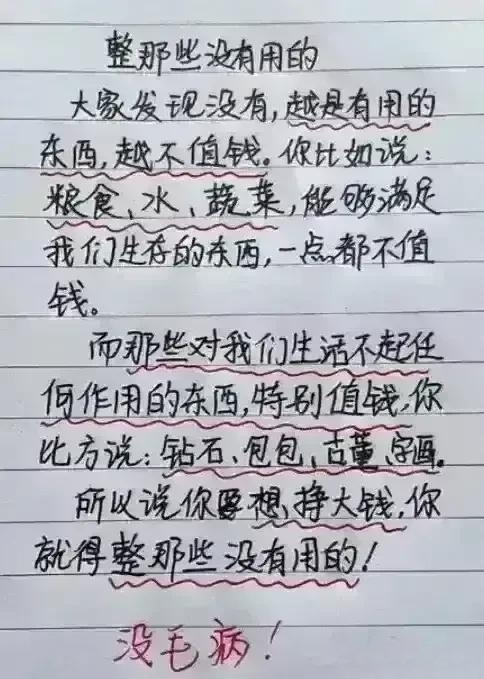 整那些没有用的
大家发现没有,越是有用的
东西,越不值钱。你比如说:
粮食、水、蔬菜,能够满足
我们生存的东西,一点都不值
钱。
而那些对我们生活不起任
何作用的东西,特别值钱,你
比方说:钻石、包包、古董、字画。
所以说你要想挣大钱,你
就得整那些没有用的!
没毛病!